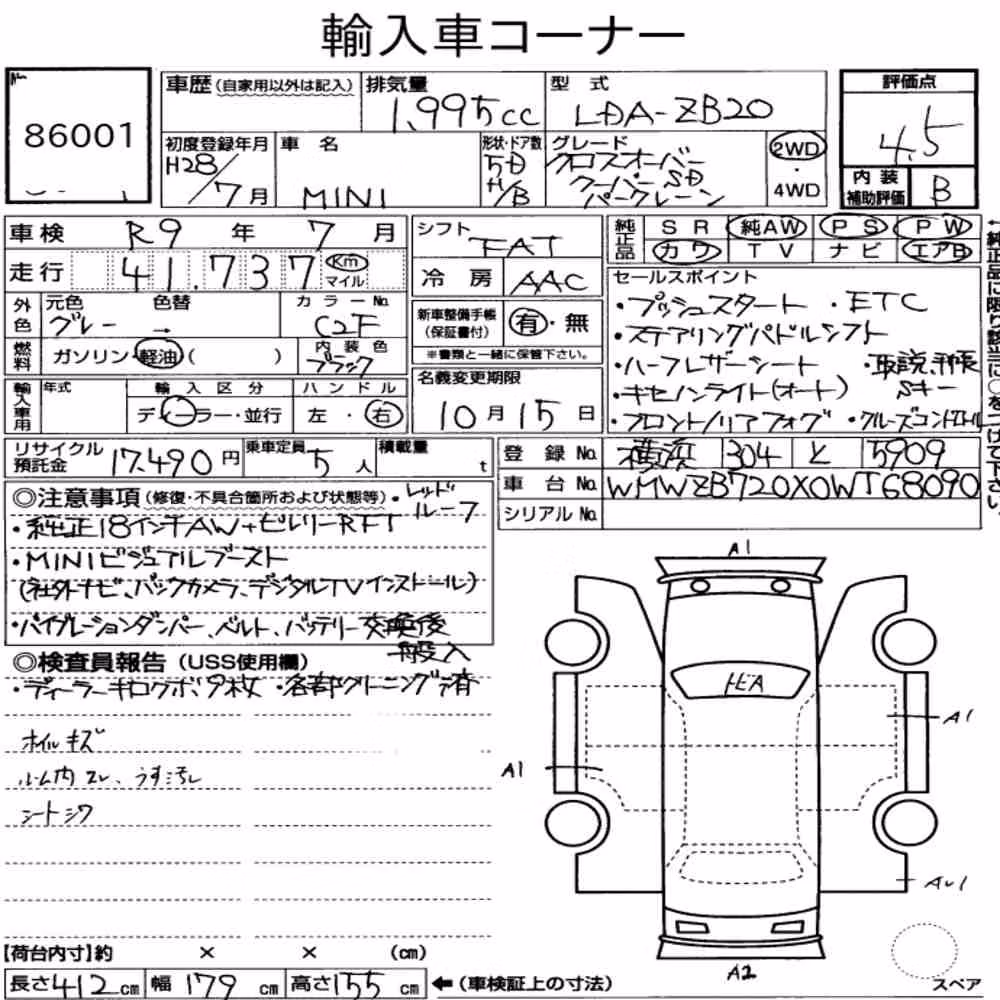 輸入車コーナー
86001
車歴 (自家用以外は記入)
排気量 1,995cc
型式 LDA-ZB20
初度登録年月 H28/7月
車名 MINI
形状・ドア数 5D H/B
グレード クロスオーバー クーパーSD パークレーン
2WD ・ 4WD
評価点 4.5
内装補助評価 B
車検 R9年 7月
走行 41,737 Km マイル
シフト FAT
冷房 AAC
純正品 SR 純AW PS PW
カワ TV ナビ エアB
←純正品に限り該当に○をつけて下さい。
外色 元色 グレー 色替 → カラーNo. C2F
燃料 ガソリン・軽油( ) 内装色 ブラック
新車整備手帳(保証書付) 有・無
※書類と一緒に保管下さい。
セールスポイント
・プッシュスタート ・ETC
・ステアリングパドルシフト
・ハーフレザーシート ・取説、手帳
・キセノンライト(オート) Sキー
・フロント/リアフォグ ・クルーズコントロール
輸入車用 年式 輸入区分 ディーラー・並行 ハンドル 左・右
名義変更期限 10月15日
リサイクル預託金 17,490円 乗車定員 5人 積載量 t
登録No. 横浜 304 と 5909
車台No. WMWZB720X0WT68090
シリアルNo.
◎注意事項(修復・不具合箇所および状態等) ・レッドルーフ
・純正18インチAW+ピレリーRFT
・MINIビジュアルブースト
(社外ナビ、バックカメラ、デジタルTVインストール)
・バイブレーションダンパー、ベルト、バッテリー交換後
再投入
◎検査員報告(USS使用欄)
・ディーラーキロクボ9枚 ・各部クリーニング済
ホイルキズ
ルーム内スレ、うす汚レ
シートシワ
A1
トビA
A1
A1
AU1
A2
スペア
【荷台内寸】約 × × (cm)
長さ412cm 幅179cm 高さ155cm ←(車検証上の寸法)